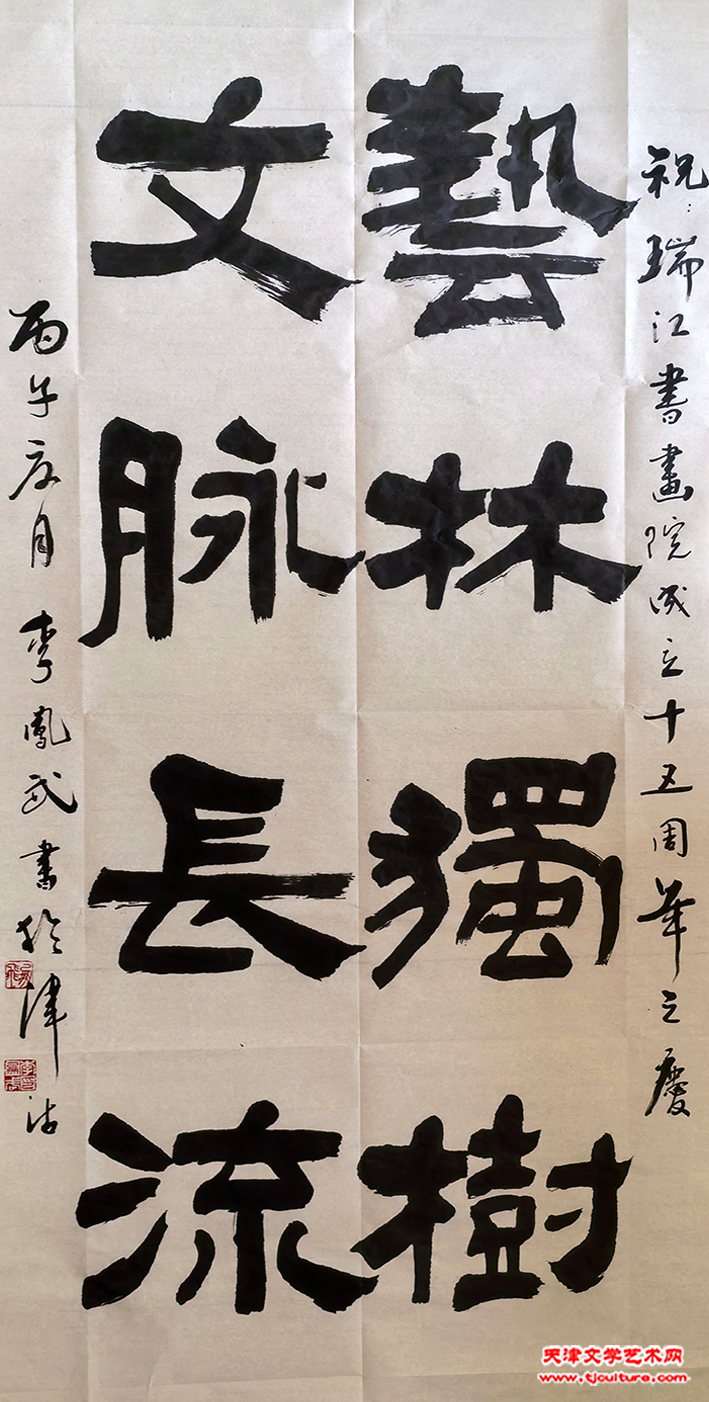 祝:瑞江書畫院成立十五周年之慶
藝林獨樹
文脉長流
丙午月李鳳武書於津沽
天津文学艺术网
www.tjculture.com